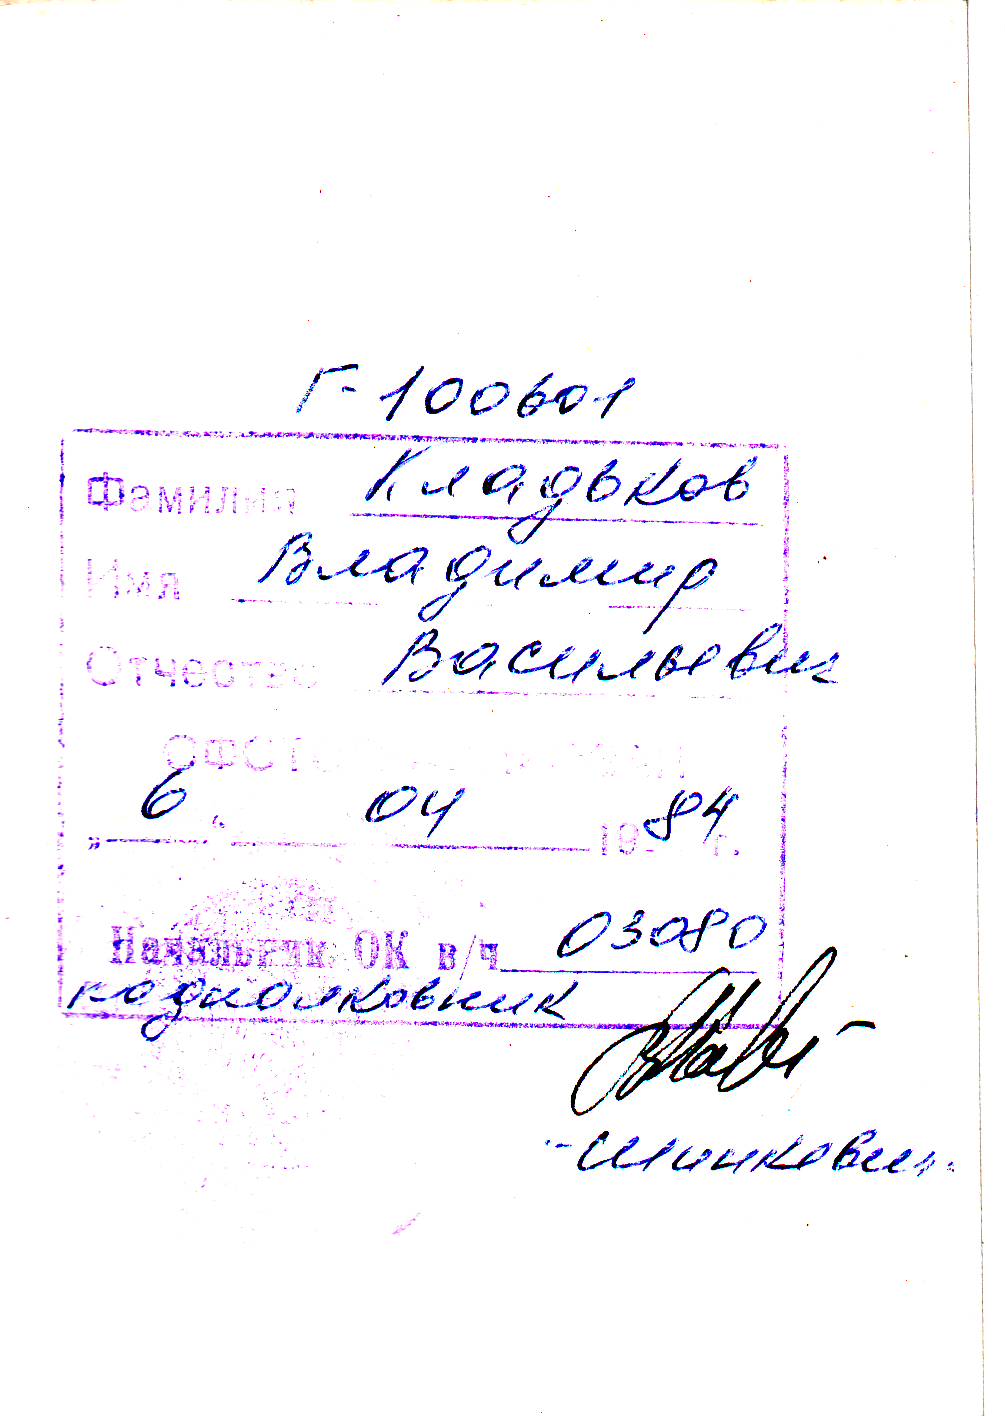 Г-100601
Фамилия Кладьков
Имя Владимир
Отчество Васильевич
„ 6 “ 04 1984 г.
Начальник ОК в/ч 03080
подполковник